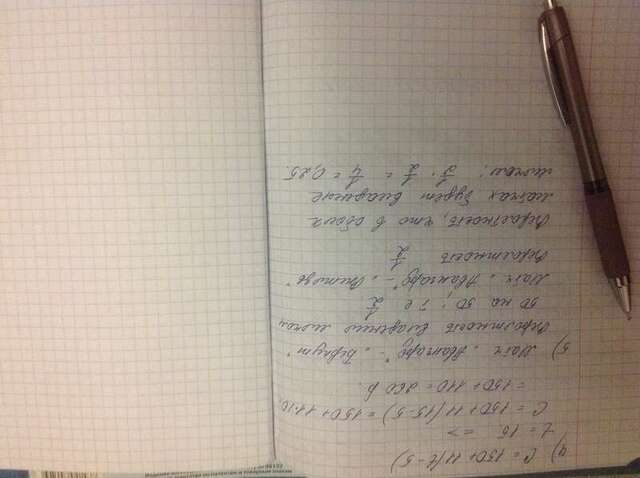 4) C = 150 + 11(t - 5)
t = 15. =>
C = 150 + 11(15 - 5) = 150 + 11·10
= 150 + 110 = 260 р.
5) Матч „Авангард" - „Беркут"
Вероятность владения мячом
50 на 50; т е 1/2
Матч „Авангард" - „Витязь"
Вероятность 1/2
Вероятность, что в обоих
матчах будет владение
мячом: 1/2 · 1/2 = 1/4 = 0,25.